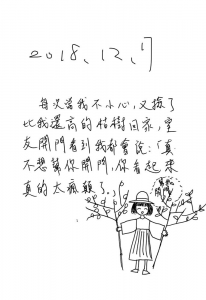 2018.12.17
每次當我不小心又撿了
比我還高的枯樹回家,室
友開門看到我都會說:「真
不想幫你開門,你看起來
真的太瘋癲了。」